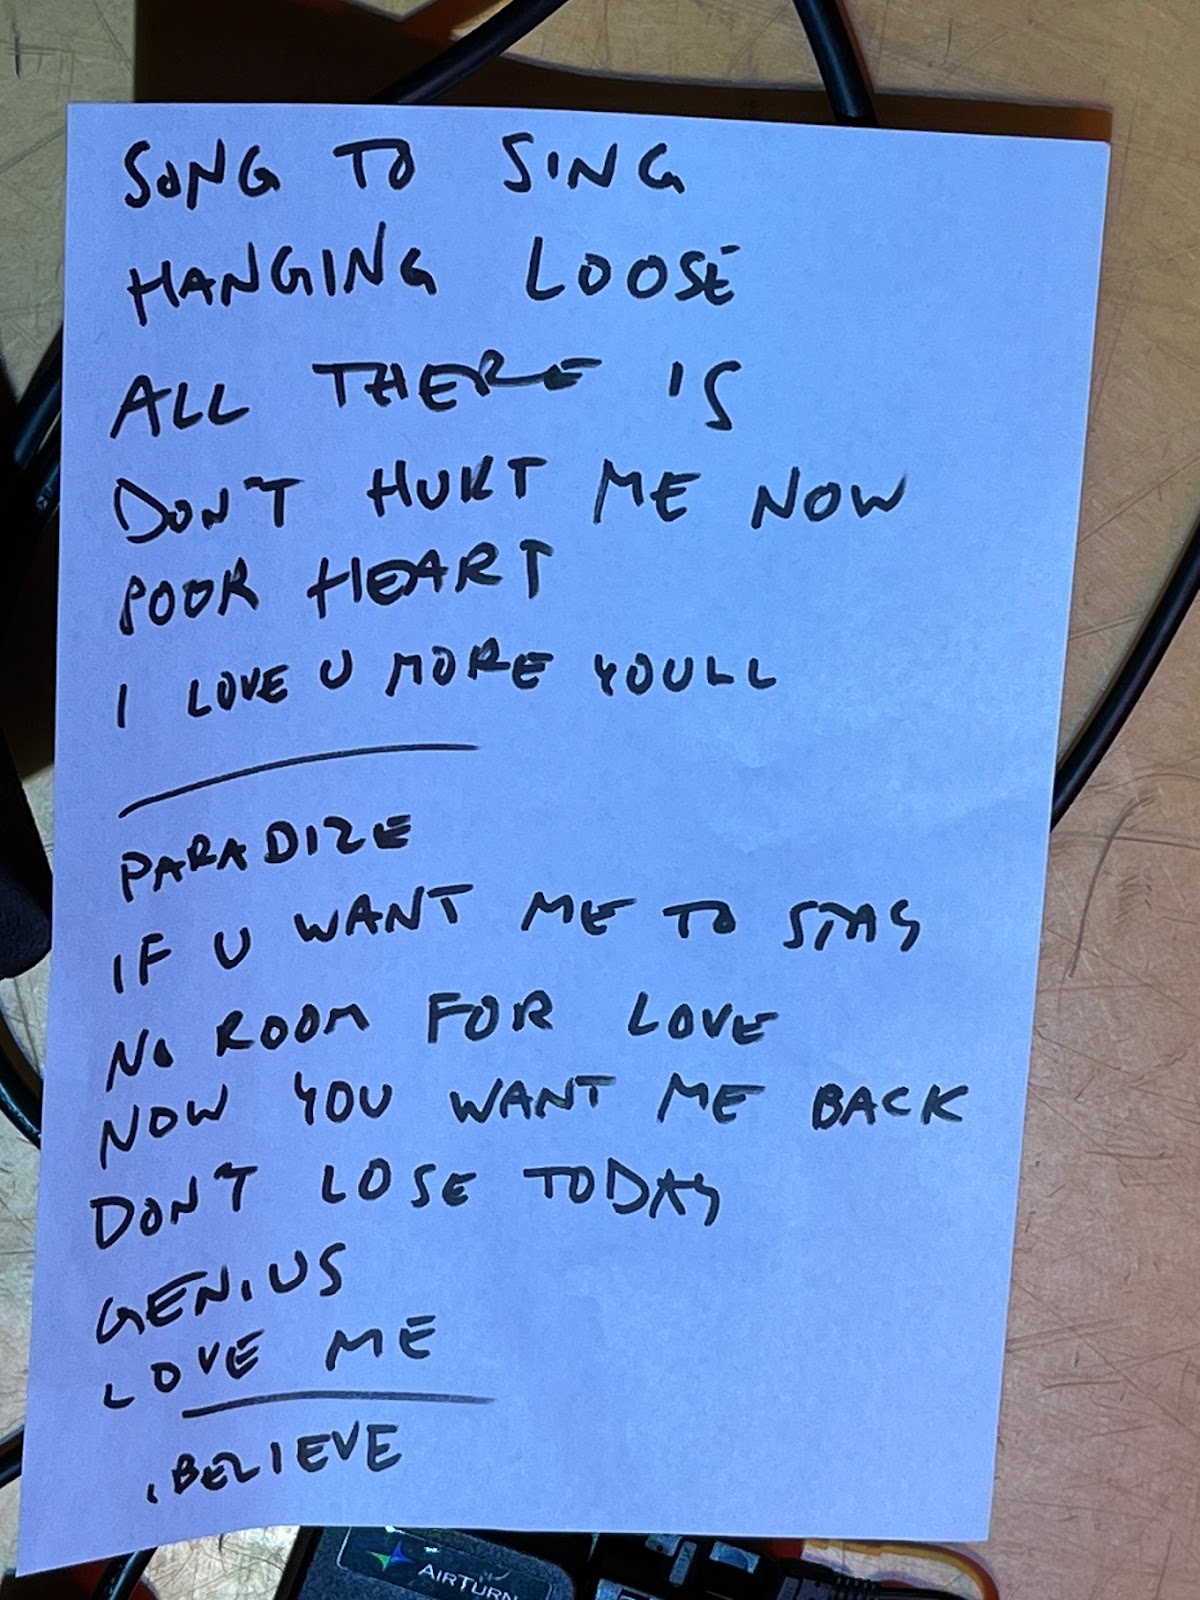 SONG TO SING
HANGING LOOSE
ALL THERE IS
DON'T HURT ME NOW
POOR HEART
I LOVE U MORE YOULL
PARADIZE
IF U WANT ME TO STAY
NO ROOM FOR LOVE
NOW YOU WANT ME BACK
DON'T LOSE TODAY
GENIUS
LOVE ME
I BELIEVE
AIRTURN